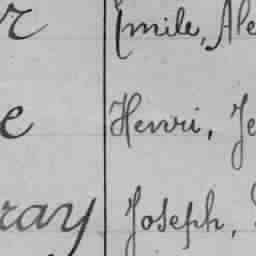 r Emile, Ale
e Henri, Je
ray Joseph,